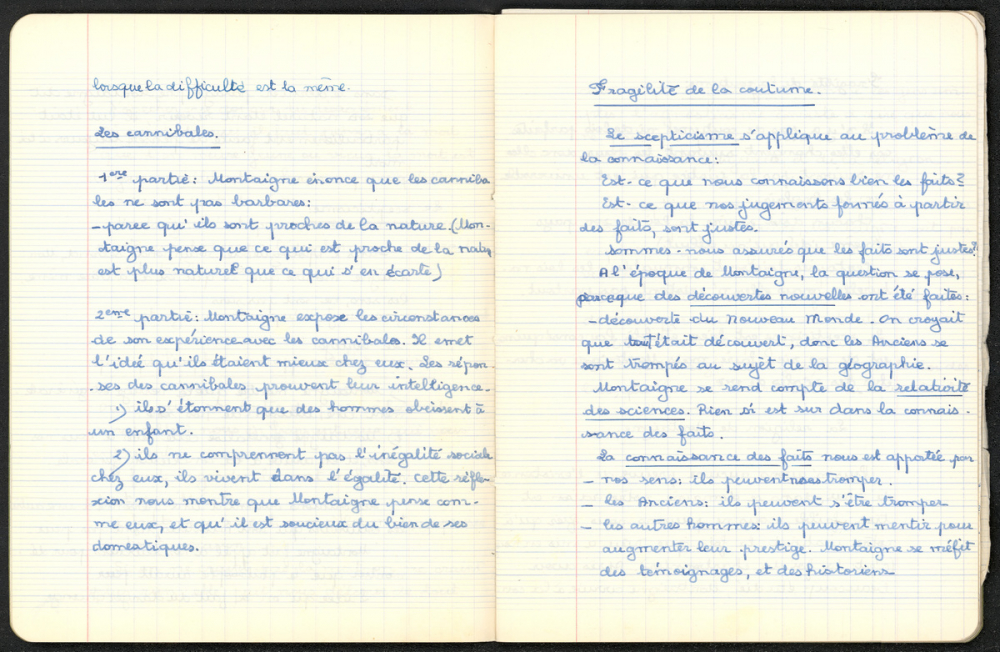 lorsque la difficulté est la même.
Les cannibales.
1ère partie: Montaigne énonce que les canniba
les ne sont pas barbares:
- parce qu'ils sont proches de la nature. (Mon-
taigne pense que ce qui est proche de la natu,
est plus naturel que ce qui s'en écarte)
2ème partie: Montaigne expose les circonstances
de son expérience avec les cannibales. Il émet
l'idée qu'ils étaient mieux chez eux. Les répon-
ses des cannibales prouvent leur intelligence.
1) ils s'étonnent que des hommes obeissent à
un enfant.
2) ils ne comprennent pas l'inégalité sociale
chez eux, ils vivent dans l'égalité. Cette réfle-
xion nous montre que Montaigne pense com-
me eux, et qu'il est soucieux du bien de ses
domestiques.
Fragilité de la coutume.
Le scepticisme s'applique au problème de
la connaissance:
Est-ce que nous connaissons bien les faits?
Est-ce que nos jugements formés à partir
des faits, sont justes.
Sommes-nous assurés que les faits sont justes?
A l'époque de Montaigne, la question se pose,
parceque des découvertes nouvelles ont été faites:
- découverte du Nouveau Monde. On croyait
que tout était découvert, donc les Anciens se
sont trompés au sujet de la géographie.
Montaigne se rend compte de la relativité
des sciences. Rien si est sur dans la connais-
sance des faits.
La connaissance des faits nous est apportée par
- nos sens: ils peuvent nous tromper.
- les Anciens: ils peuvent s'être tromper
- les autres hommes: ils peuvent mentir pour
augmenter leur prestige. Montaigne se méfit
des témoignages, et des historiens